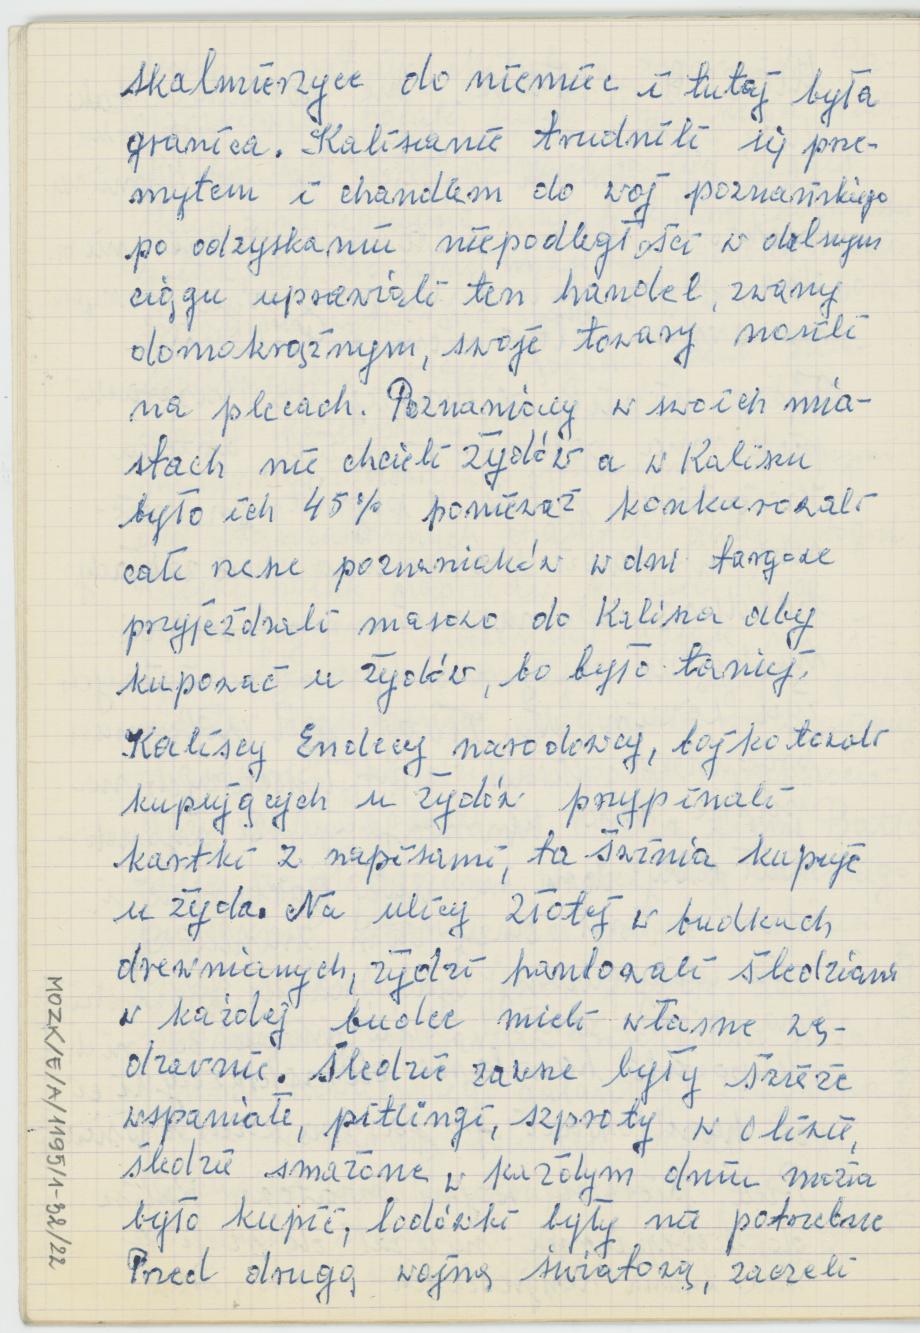 Skalmierzyce do niemiec i tutaj była
granica. Kaliszanie trudnili się prze-
mytem i chandlem do woj poznańskiego
po odzyskaniu niepodległości w dalszym
ciągu uprawiali ten handel, zwany
domokrążnym, swoje towary nosili
na plecach. Poznaniacy w swoich mia-
stach nie chcieli Żydów a w Kaliszu
było ich 45% ponieważ konkurowali
całe rzesze poznaniaków w dni targowe
przyjeżdzali masowo do Kalisza aby
kupować u Żydów, bo było taniej.
Kaliscy Endecy narodowcy, bojkotowali
kupujących u żydów przypinali
kartki z napisami, ta świnia kupuje
u żyda. Na ulicy Złotej w budkach
drewnianych, żydzi handlowali śledziami
w każdej budce mieli własne wę-
dzarnie. Śledzie zawsze były świeże
wspaniałe, pitlingi, szproty w oliwie,
śledzie smażone w każdym dniu można
było kupić, lodówki były nie potrzebne
Przed drugą wojną światową, zaczeli
MOZK/E/A/1195/1-52/22